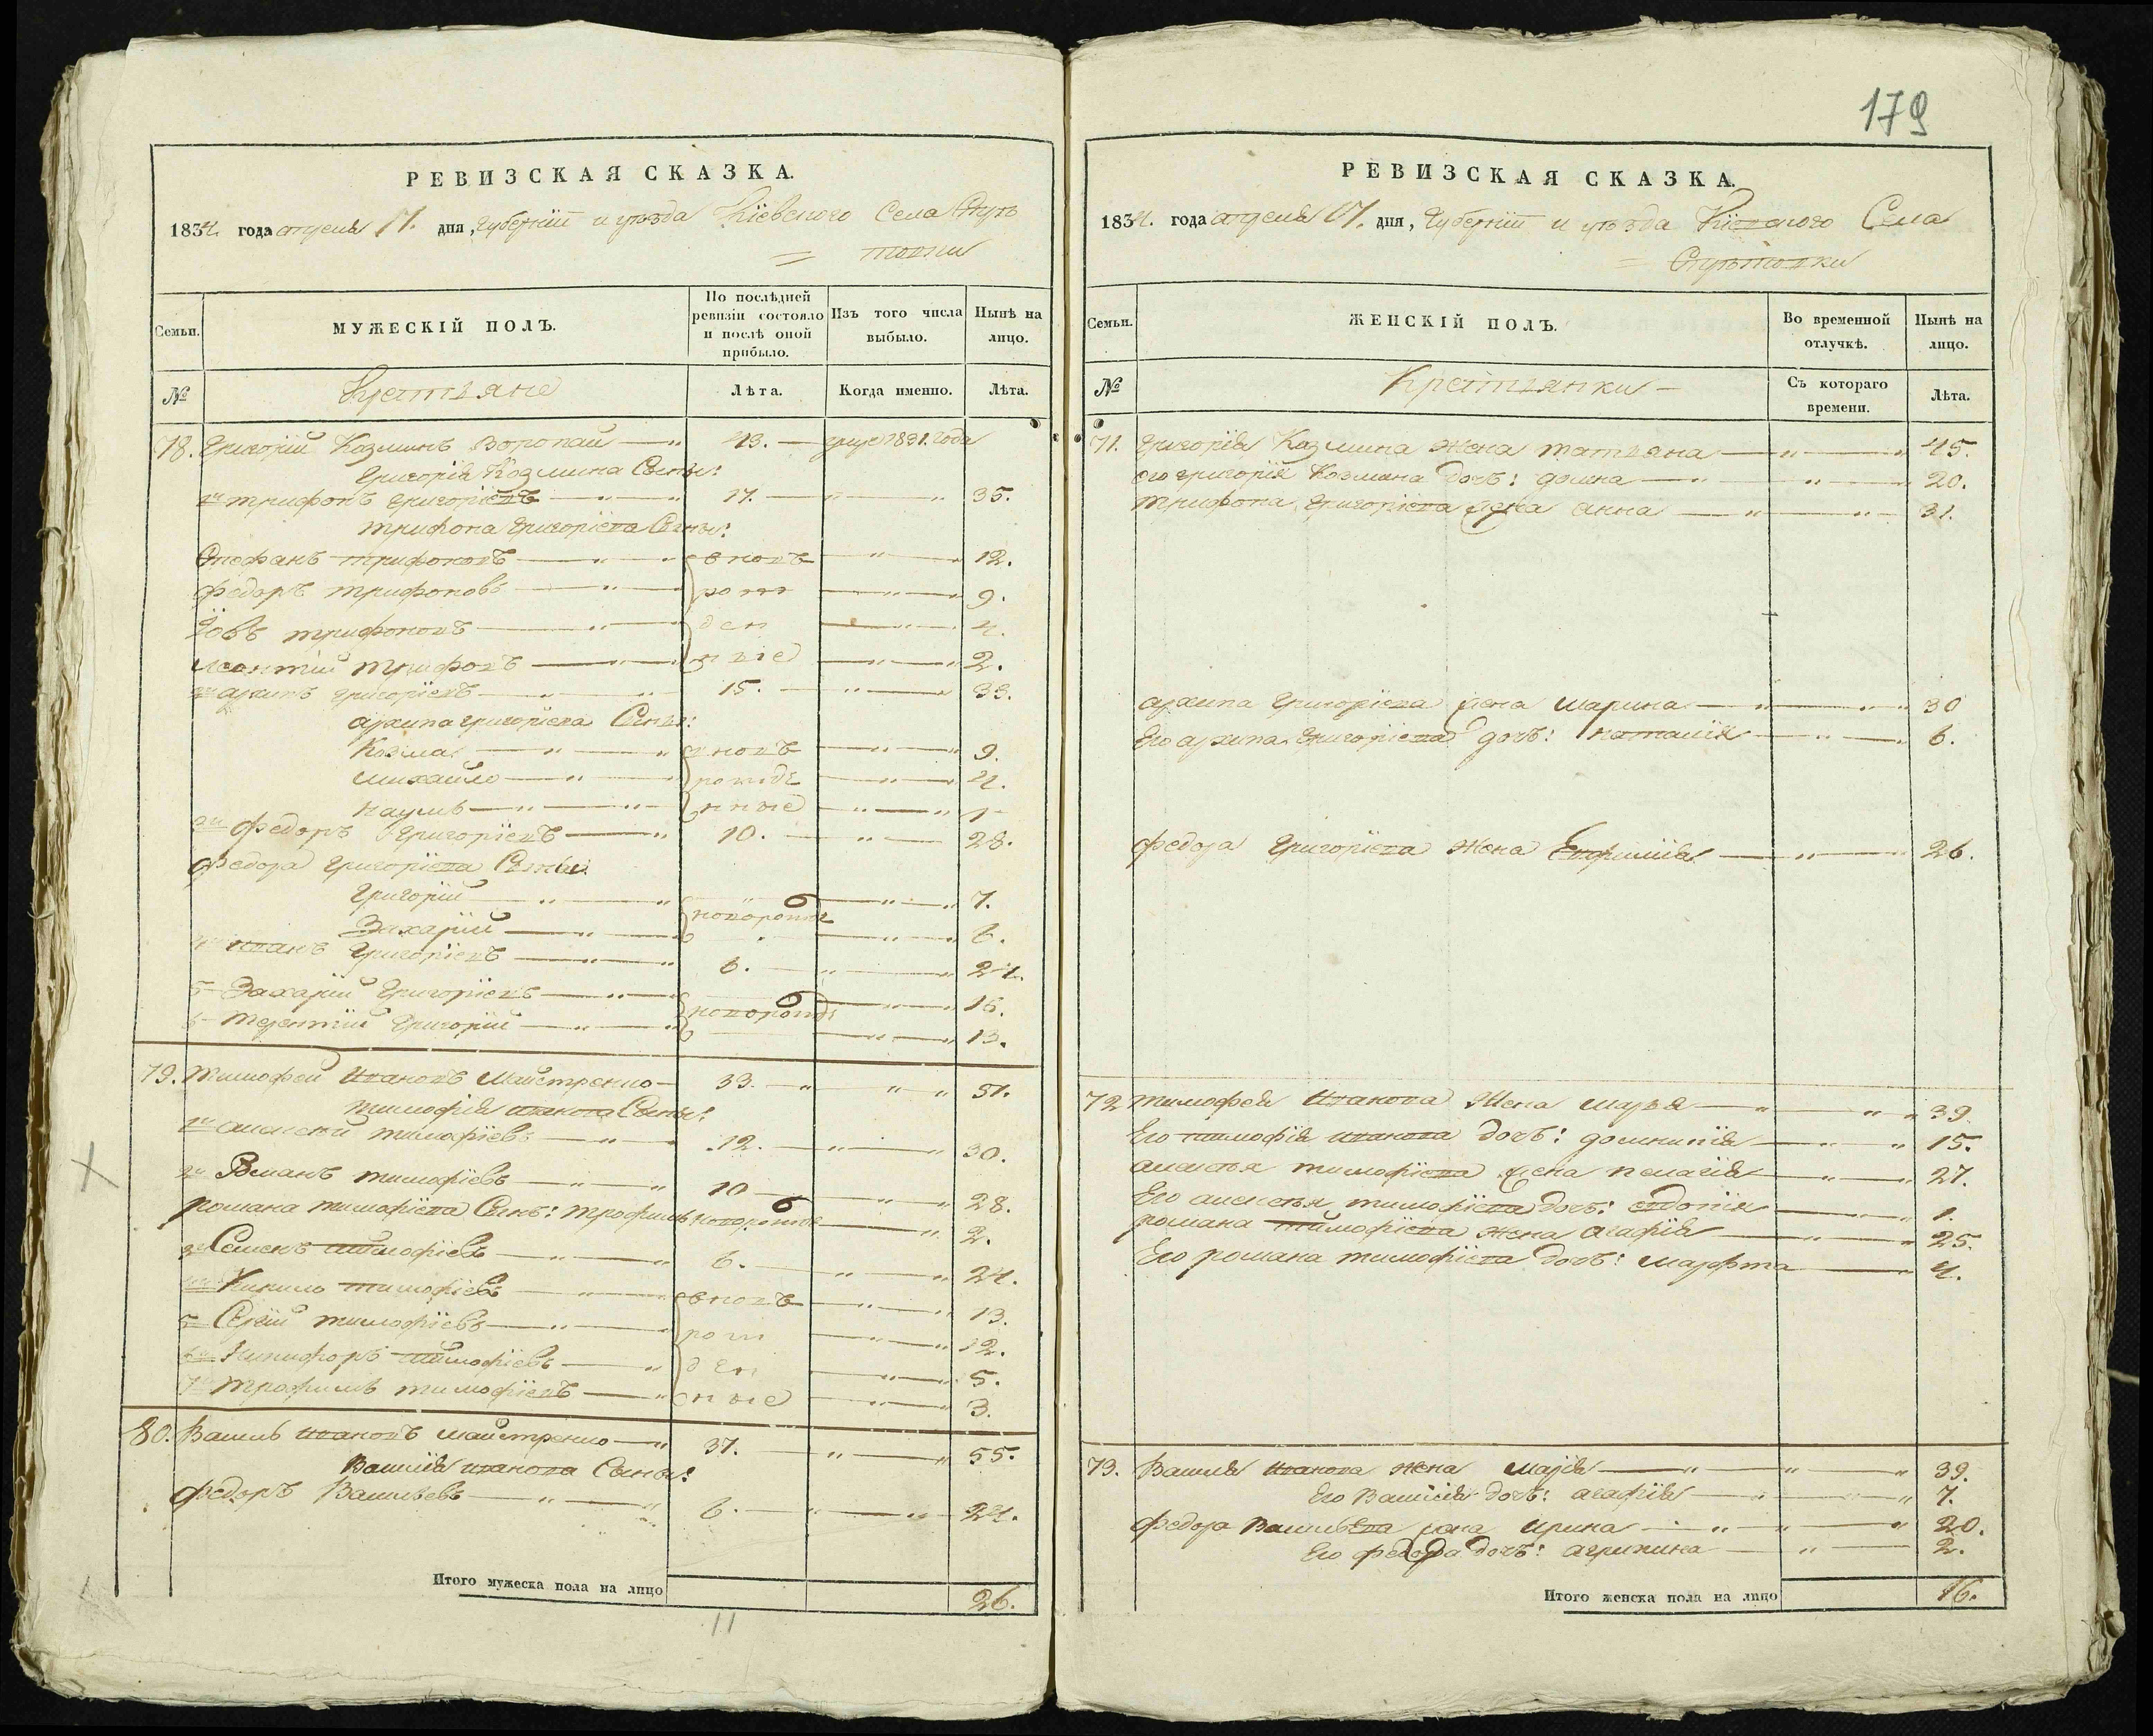 179
РЕВИЗСКАЯ СКАЗКА.
1834. года апреля 17. дня, Губернiи и уѣзда Кiевского Села
РЕВИЗСКАЯ СКАЗКА.
1834. года апреля 17. дня, Губернiи и уѣзда Кiевского Села
Семьи.
МУЖЕСКIЙ ПОЛЪ.
По послѣдней ревизiи состояло и послѣ оной прибыло.
Изъ того числа выбыло.
Нынѣ на лицо.
№
Крестьяне
Лѣта.
Когда именно.
Лѣта.
78. Григорiй Козминъ Воропай 43. 1831. года
Григорiя Козмина Сыны:
1й трифонъ григорiевъ 17. 35.
трифона григорiева Сыны:
Стефанъ трифоновъ вновь 12.
федоръ трифоновъ рож 9.
Iовъ трифоновъ ден 4.
леонтiй трифонов ные 2.
2й архипъ григорiевъ 15. 33.
архипа григорiева Сыны:
Козма вновь 9.
михайло рожде 4.
наумъ нные 1
3й федоръ Григорiевъ 10. 28.
федора григорiева Сыны:
григорiй 7.
новорожде
Захарiй 6.
4й иванъ григорiевъ 6. 24.
5 Захарiй григорiевъ 16.
новорожд
6 терентiй григорiй 13.
79. Тимофей Ивановъ Майстренко 33. 51.
тимофiя иванова Сыны:
1й алексей тимофiевъ 12. 30.
2й Романъ тимофiевъ 10 28.
романа тимофiева Сынъ: трофимъ новорожде 2.
3й Семенъ тимофiевъ 6. 24.
4й Кирило тимофiевъ вновь 13.
5 Сергiй тимофiевъ рож 12.
6й Никифоръ тимофiевъ ден 5.
7й трофимъ тимофiевъ ные 3.
80. Василь ивановъ майстренко 37. 55.
Василiя иванова Сыны:
федоръ Васильевъ 6. 24.
Итого мужеска пола на лицо 26.
Семьи.
ЖЕНСКIЙ ПОЛЪ.
Во временной отлучкѣ.
Нынѣ на лицо.
№
Крестьянки
Съ котораго времени.
Лѣта.
71. Григорiя Козмина жена татьяна 45.
его григорiя Козмина дочь: домна 20.
трифона григорiева жена анна 31.
архипа григорiева жена марина 30
Его архипа григорiева дочь: наталiя 6.
федора григорiева жена Евфимiя 26.
72 тимофея Иванова Жена марья 39
Его тимофiя иванова дочь: домникiя 15.
алексея тимофiева жена пелагiя 27.
Его алексея тимофiева дочь: евдокiя 1.
романа тимофiева жена агафiя 25.
Его романа тимофiева дочь: марфта 4.
73. Василя иванова жена марiя 39.
Его Василiя дочь: агафiя 7.
федора Васильева жена ирина 20.
Его федора дочь: агрипина 2.
Итого женска пола на лицо 16.